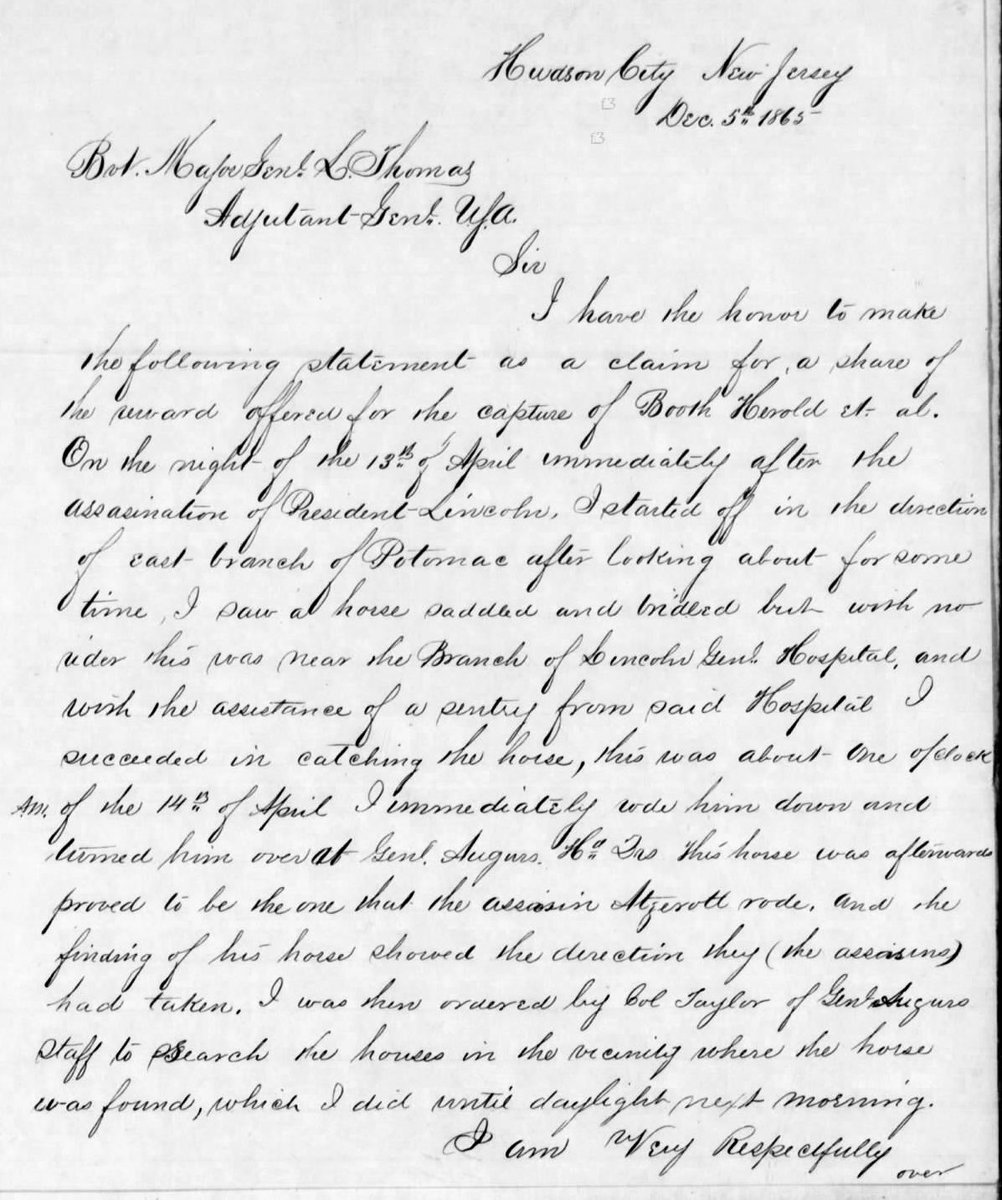 Hudson City New Jersey
Dec. 5th 1865
Bvt. Major Genl. L. Thomas
Adjutant Genl. U.S.A.
Sir
I have the honor to make
the following statement as a claim for a share of
the reward offered for the capture of Booth Herold et al.
On the night of the 13th of April immediately after the
assasination of President Lincoln, I started off in the direction
of east branch of Potomac after looking about for some
time, I saw a horse saddled and bridled but with no
rider this was near the Branch of Lincoln Genl. Hospital, and
with the assistance of a sentry from said Hospital I
succeeded in catching the horse, this was about One o'clock
A.M. of the 14th of April I immediately rode him down and
turned him over at Genl. Augurs. Hd Qrs This horse was afterwards
proved to be the one that the assasin Atzerott rode. and the
finding of his horse showed the direction they (the assasins)
had taken. I was then ordered by Col Taylor of Genl Augurs
Staff to search the houses in the vicinity where the horse
was found, which I did until daylight next morning.
I am Very Respectfully
over